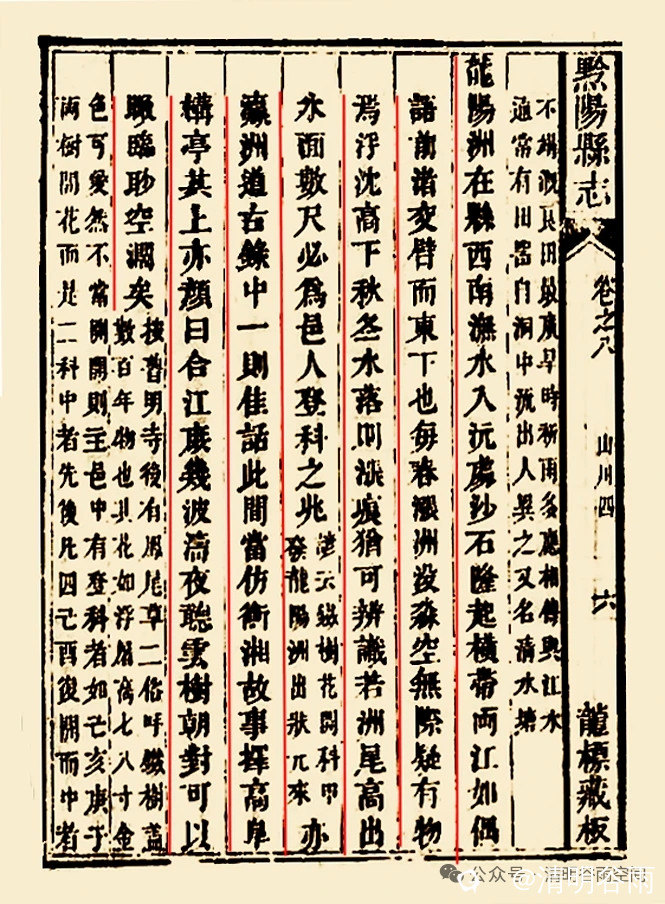 黔陽縣志 卷之八 山川四 六 龍標藏板
不構溉良田最廣旱時祈雨多應相傳與江水
通常有田器自洞中流出人異之又名清水塘
龍陽洲在縣西南潕水入沅處沙石隆起橫帶両江如偶
語前渚交臂而東下也每春漲洲没淼空無際疑有物
焉浮沈高下秋冬水落則漲痕猶可辨識若洲尾高出
水面數尺必為邑人登科之兆
諺云鐵樹花開科甲
發龍陽洲出狀元來
亦
瀛洲道古錄中一則佳話此間當仿衡湘故事擇高阜
構亭其上亦顏曰合江庶幾波濤夜聽雲樹朝對可以
瞰臨眇空濶矣
按普明寺後有鳳尾草二俗呼鐵樹蓋
數百年物也其花如浮屠高七八寸金
色可愛然不常開開則主邑中有登科者如乙亥庚子
両樹開花而是二科中者先後凡四己酉復開而中者
公众号·清明谷雨空间
@清明谷雨